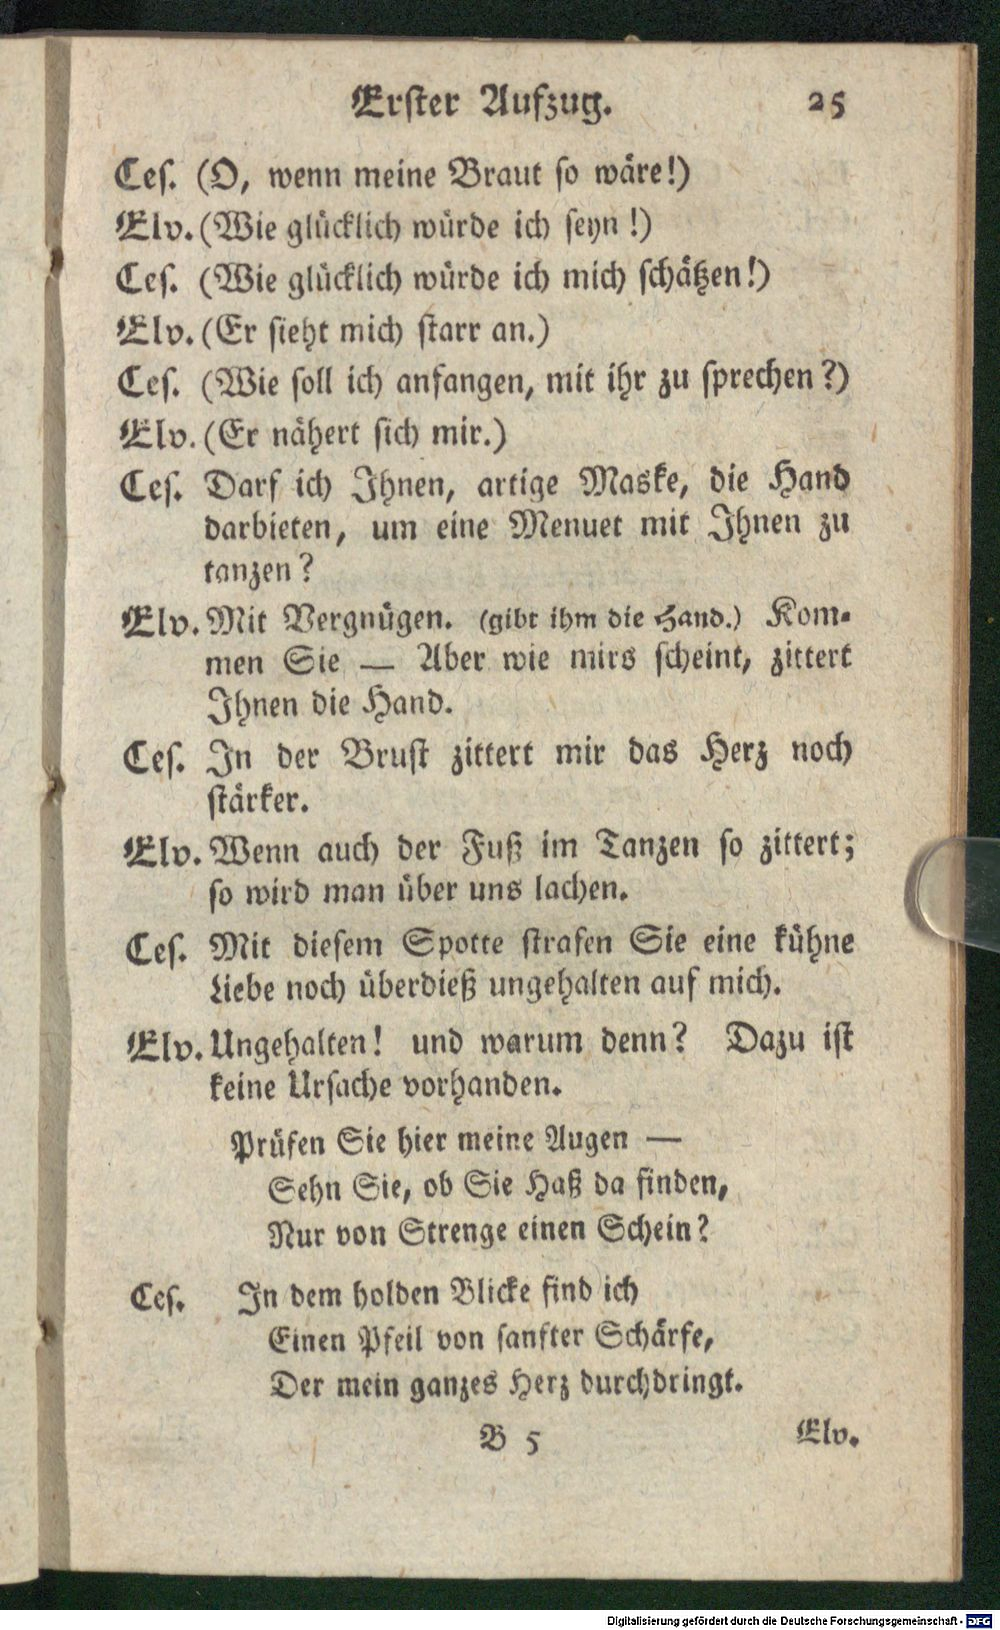 Erster Aufzug. 25
Ces. (O, wenn meine Braut so wäre!)
Elv. (Wie glücklich würde ich seyn!)
Ces. (Wie glücklich würde ich mich schätzen!)
Elv. (Er sieht mich starr an.)
Ces. (Wie soll ich anfangen, mit ihr zu sprechen?)
Elv. (Er nähert sich mir.)
Ces. Darf ich Ihnen, artige Maske, die Hand
darbieten, um eine Menuet mit Ihnen zu
tanzen?
Elv. Mit Vergnügen. (gibt ihm die Hand.) Kom-
men Sie — Aber wie mirs scheint, zittert
Ihnen die Hand.
Ces. In der Brust zittert mir das Herz noch
stärker.
Elv. Wenn auch der Fuß im Tanzen so zittert;
so wird man über uns lachen.
Ces. Mit diesem Spotte strafen Sie eine kühne
Liebe noch überdieß ungehalten auf mich.
Elv. Ungehalten! und warum denn? Dazu ist
keine Ursache vorhanden.
Prüfen Sie hier meine Augen —
Sehn Sie, ob Sie Haß da finden,
Nur von Strenge einen Schein?
Ces. In dem holden Blicke find ich
Einen Pfeil von sanfter Schärfe,
Der mein ganzes Herz durchdringt.
B 5 Elv.
Digitalisierung gefördert durch die Deutsche Forschungsgemeinschaft - DFG